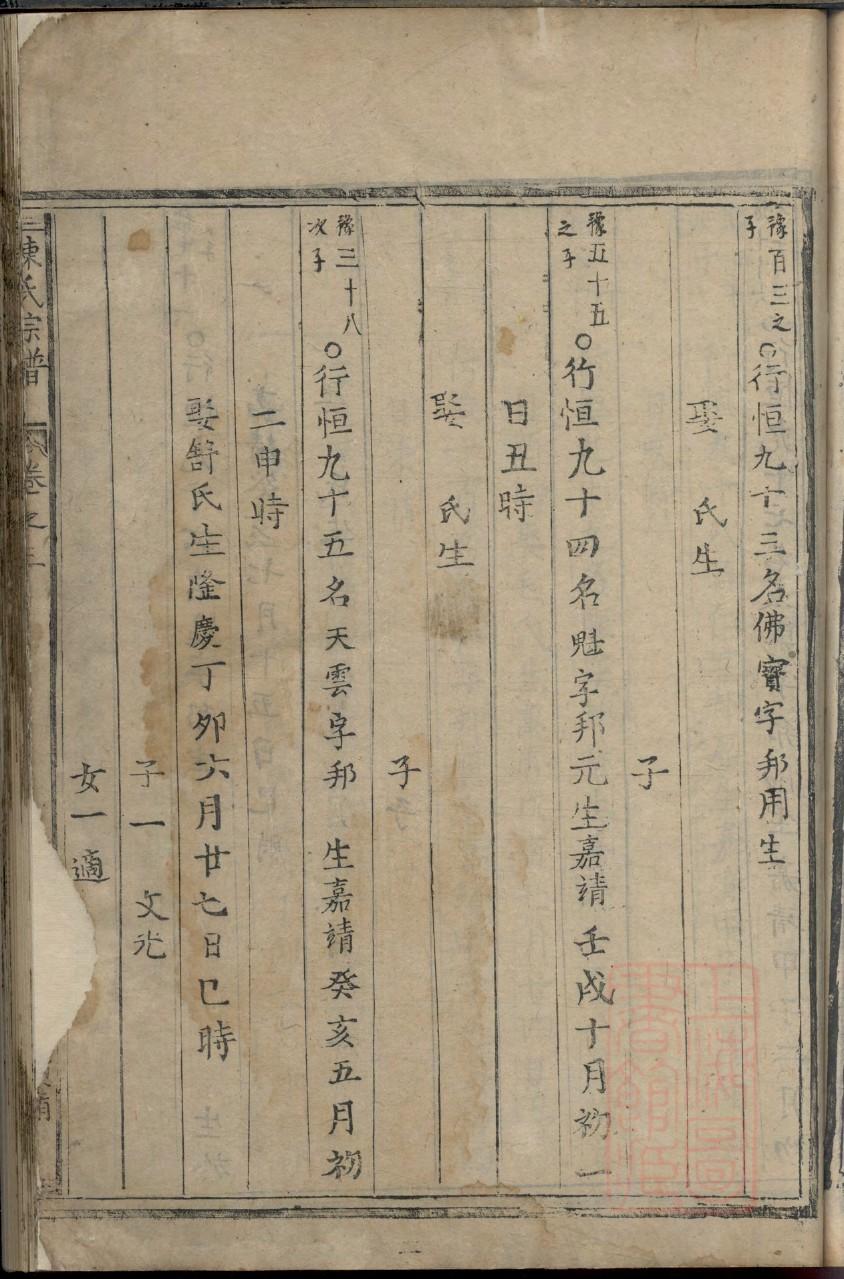 豫百三之子○行恒九十三名佛寳字邦用生
娶　氏生
子
豫五十五之子○行恒九十四名魁字邦元生嘉靖壬戌十月初一
日丑時
娶　氏生
子
豫三十八次子○行恒九十五名天雲字邦　生嘉靖癸亥五月初
二申時
娶舒氏生隆慶丁卯六月廿七日巳時
子一　文光
女一適
陳氏宗譜　卷之三